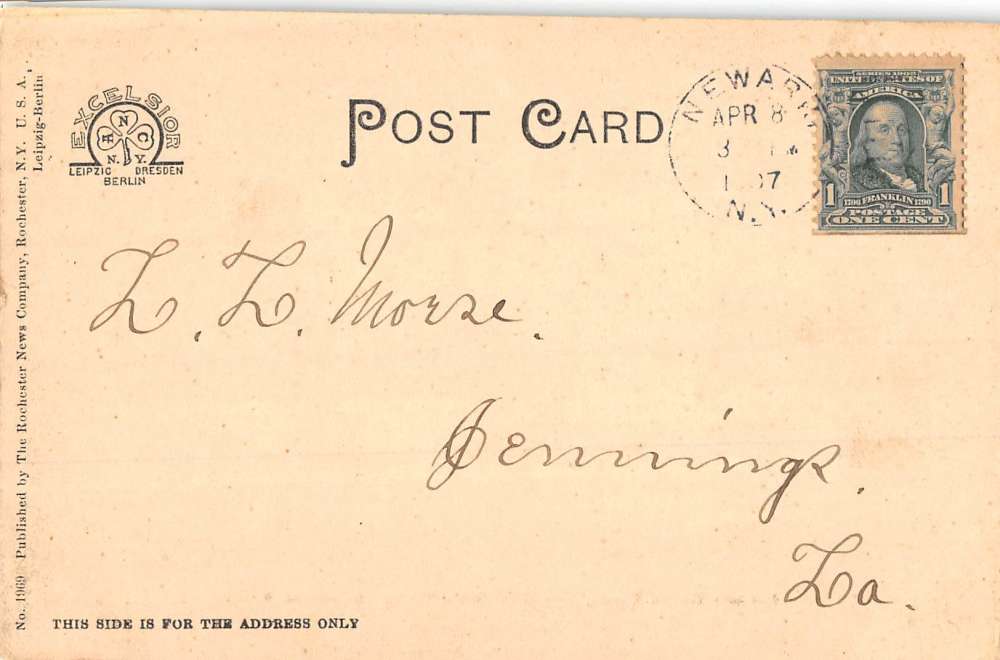 No. 1969 Published by The Rochester News Company, Rochester, N.Y. U. S. A.,
Leipzig-Berlin
EXCELSIOR
R N C
N. Y.
LEIPZIG DRESDEN
BERLIN
POST CARD
NEWARK
APR 8
3 PM
N.Y.
SERIES 1902
UNITED STATES OF
AMERICA
1706 FRANKLIN 1790
1 1
POSTAGE
ONE CENT
L. L. Morse.
Jennings.
La.
THIS SIDE IS FOR THE ADDRESS ONLY